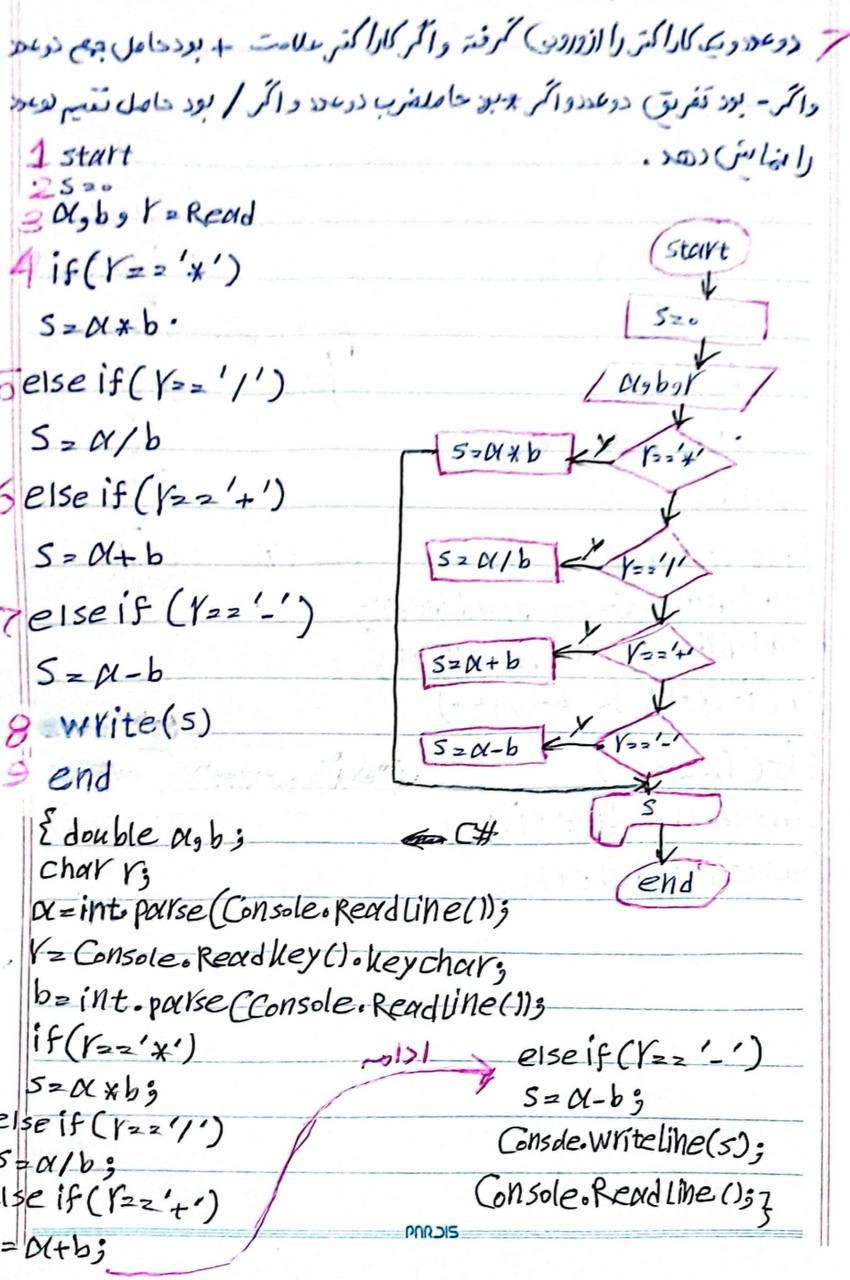 7 دو عدد و یک کاراکتر را از ورودی گرفته و اگر کاراکتر علامت + بود حاصل جمع دو عدد
و اگر - بود تفریق دو عدد و اگر * بود حاصلضرب دو عدد و اگر / بود حاصل تقسیم دو عدد
را نمایش دهد.
1 start
2 s=0
3 a,b,r=Read
4 if(r=='*')
s=a*b.
5 else if(r=='/')
s=a/b
6 else if(r=='+')
s=a+b
7 else if (r=='-')
s=a-b
8 write(s)
9 end
start
s=0
a,b,r
r=='*'
y
s=a*b
r=='/'
y
s=a/b
r=='+'
y
s=a+b
r=='-'
y
s=a-b
s
end
C#
{ double a,b;
char r;
a=int.parse(Console.ReadLine());
r=Console.Readkey().keychar;
b=int.parse(Console.ReadLine());
if(r=='*')
s=a*b;
else if(r=='/')
s=a/b;
lse if(r=='+')
=a+b;
ادامه
else if(r=='-')
s=a-b;
Console.Writeline(s);
Console.ReadLine();}
PARDIS